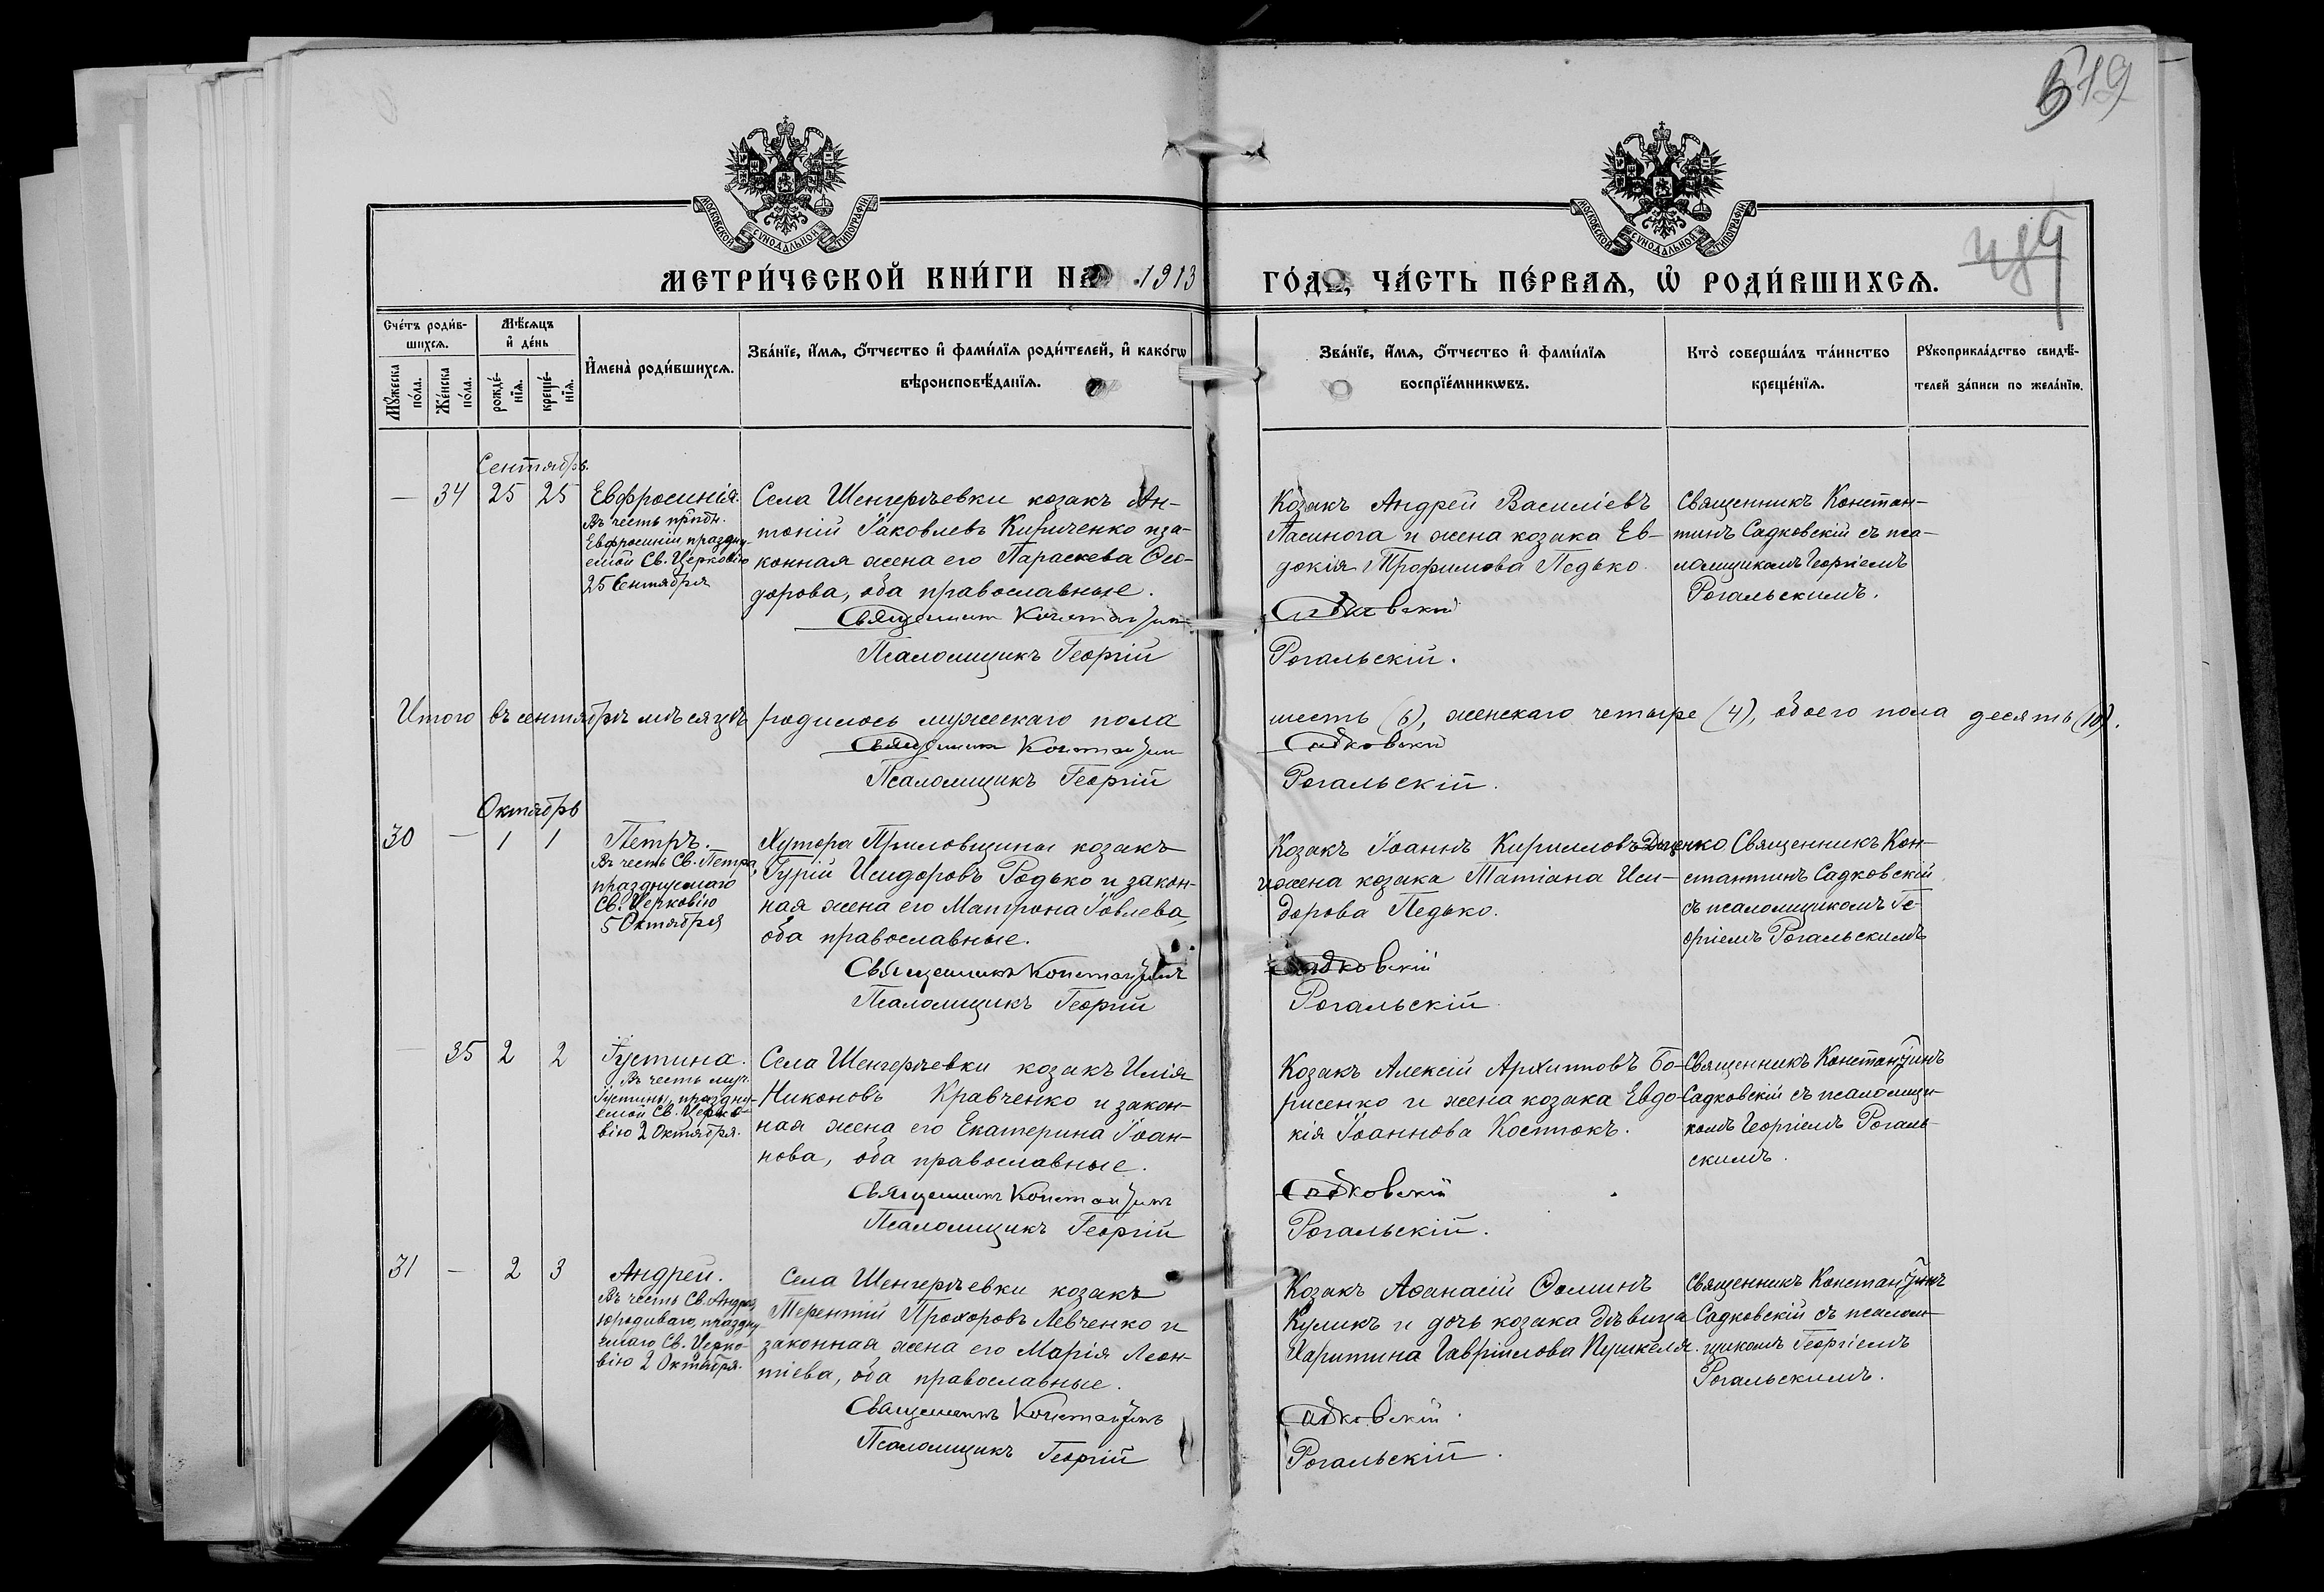 519
МОСКОВСКОЙ СѴНОДАЛЬНОЙ ТИПОГРАФІИ
МОСКОВСКОЙ СѴНОДАЛЬНОЙ ТИПОГРАФІИ
МЕТРИ́ЧЕСКОЙ КНИ́ГИ НА 1913
ГО́ДЪ, ЧА́СТЬ ПЕ́РВАѦ, Ѡ҆ РОДИ́ВШИХСѦ.
Сче́тъ роди́в-
шихсѧ.
Мѣ́сѧцъ
и҆ де́нь
Мꙋ́жеска
по́ла.
Же́нска
по́ла.
рожде́-
нїѧ.
креще́-
нїѧ.
И҆мена̀ роди́вшихсѧ.
Зва́нїе, и҆́мѧ, ѻ҆́тчество и҆ фами́лїѧ роди́телей, и҆ како́гѡ
вѣроисповѣ́данїѧ.
Зва́нїе, и҆́мѧ, ѻ҆́тчество и҆ фами́лїѧ
воспрїе́мникѡвъ.
Кто̀ соверша́лъ та́инство
креще́нїѧ.
Рꙋкоприкла́дство свидѣ́-
телей за́писи по жела́нїю.
Сентябрь.
— 34 25 25
Евфросинія.
Въ честь прпдб.
Евфросиніи праздну-
емой Св. Церковію
25 Сентября
Села Шенгерѣевки козакъ Ан-
тоній Іаковлевъ Кириченко и за-
конная жена его Параскева Ѳео-
дорова, оба православные.
Священникъ Константинъ
Псаломщикъ Георгій
Козакъ Андрей Василіевъ
Пасинога и жена козака Ев-
докія Трофимова Педько.
Садковскій
Рогальскій.
Священникъ Констан-
тинъ Садковскій съ пса-
ломщикомъ Георгіемъ
Рогальскимъ.
Итого въ сентябрѣ мѣсяцѣ родилось мужескаго пола шесть (6), женскаго четыре (4), обоего пола десять (10).
Священникъ Константинъ Садковскій
Псаломщикъ Георгій Рогальскій.
Октябрь
30 — 1 1
Петръ.
Въ честь Св. Петра,
празднуемаго
Св. Церковію
5 Октября
Хутора Приловщины козакъ
Гурій Исидоровъ Родько и закон-
ная жена его Матрона Іовлева,
оба православные.
Священникъ Константинъ
Псаломщикъ Георгій
Козакъ Іоаннъ Кирилловъ Диценко
и жена козака Татіана Иси-
дорова Педько.
Садковскій
Рогальскій
Священникъ Кон-
стантинъ Садковскій
съ псаломщикомъ Ге-
оргіемъ Рогальскимъ
— 35 2 2
Іустина.
Въ честь муч.
Іустины, праздну-
емой Св. Церко-
вію 2 Октября.
Села Шенгерѣевки козакъ Илія
Никоновъ Кравченко и закон-
ная жена его Екатерина Іоан-
нова, оба православные.
Священникъ Константинъ
Псаломщикъ Георгій
Козакъ Алексій Архиповъ Бо-
рисенко и жена козака Евдо-
кія Іоаннова Костюкъ.
Садковскій
Рогальскій.
Священникъ Константинъ
Садковскій съ псаломщи-
комъ Георгіемъ Рогаль-
скимъ.
31 — 2 3
Андрей.
Въ честь Св. Андрея,
юродиваго, праздну-
емаго Св. Церко-
вію 2 Октября.
Села Шенгерѣевки козакъ
Терентій Прохоровъ Левченко и
законная жена его Марія Леон-
тіева, оба православные.
Священникъ Константинъ
Псаломщикъ Георгій
Козакъ Аѳанасій Ѳоминъ
Куликъ и дочь козака дѣвица
Харитина Гавріилова Пушкеля.
Садковскій.
Рогальскій.
Священникъ Константинъ
Садковскій съ псалом-
щикомъ Георгіемъ
Рогальскимъ.